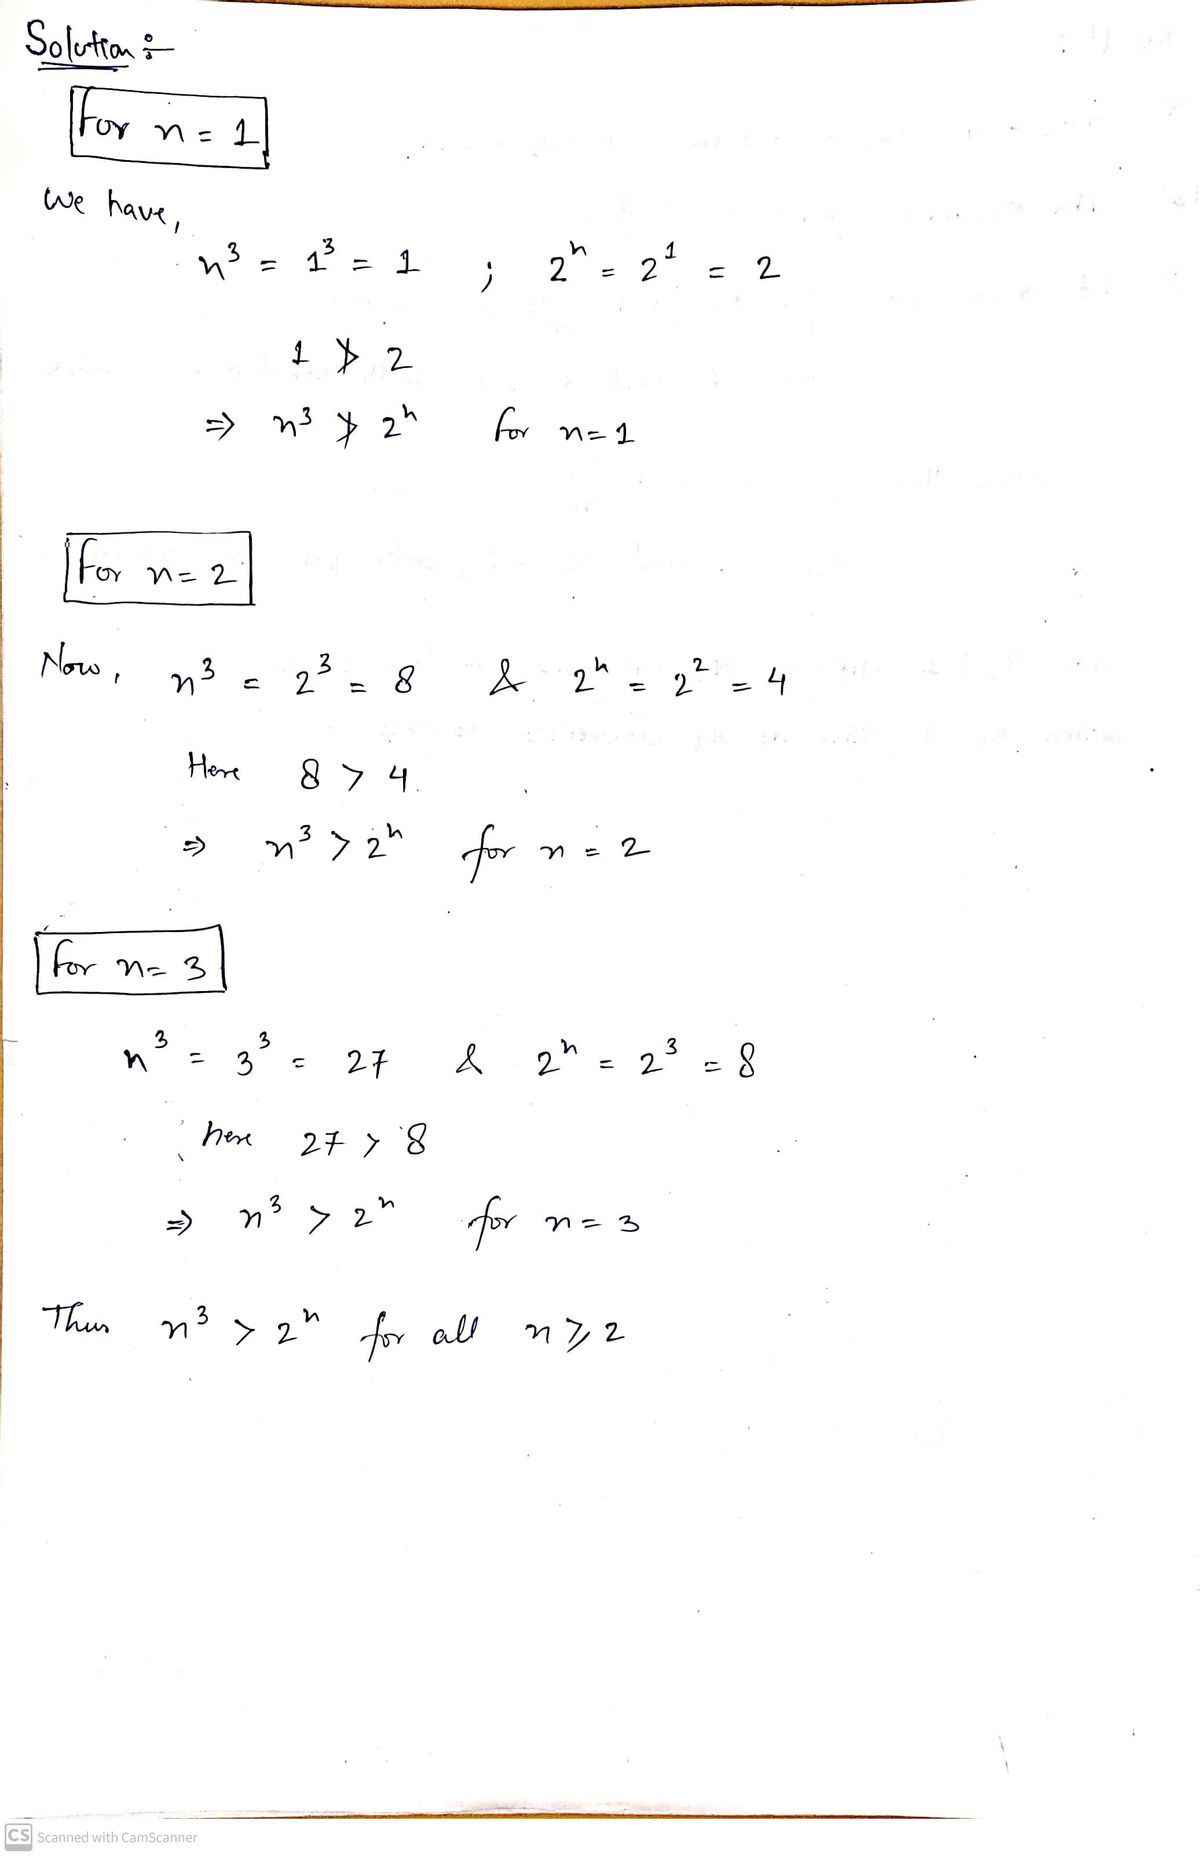 Solution :-
For n = 1
We have,
n³ = 1³ = 1 ; 2ⁿ = 2¹ = 2
1 ≯ 2
⇒ n³ ≯ 2ⁿ for n = 1
For n = 2
Now, n³ = 2³ = 8 & 2ⁿ = 2² = 4
Here 8 > 4
⇒ n³ > 2ⁿ for n = 2
For n = 3
n³ = 3³ = 27 & 2ⁿ = 2³ = 8
here 27 > 8
⇒ n³ > 2ⁿ for n = 3
Thus n³ > 2ⁿ for all n ⩾ 2
CS Scanned with CamScanner